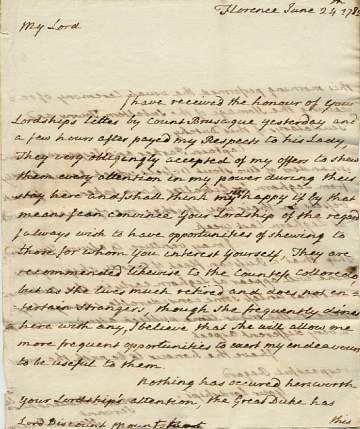 Florence June 24th 178
My Lord
I have received the honour of your
Lordships letter by Count and
a few hours after payed my Respects to his Lady
They very obligingly accepted of my offers to shew
them every attention in my power during their
stay here and I shall think myself happy if by that
means I can convince your Lordship of the regard
I always wish to have opportunities of shewing to
those for whom you interest yourself, They are
recommended likewise to the Countess
but as she lives much retired and does not en=
tertain Strangers though she frequently dines
here with any, I believe that she will allow me
more frequent opportunities to exert my endeavours
to be useful to them.
Nothing has occured here worth
your Lordship's attention, the Great Duke has
Lord Viscount Mount this